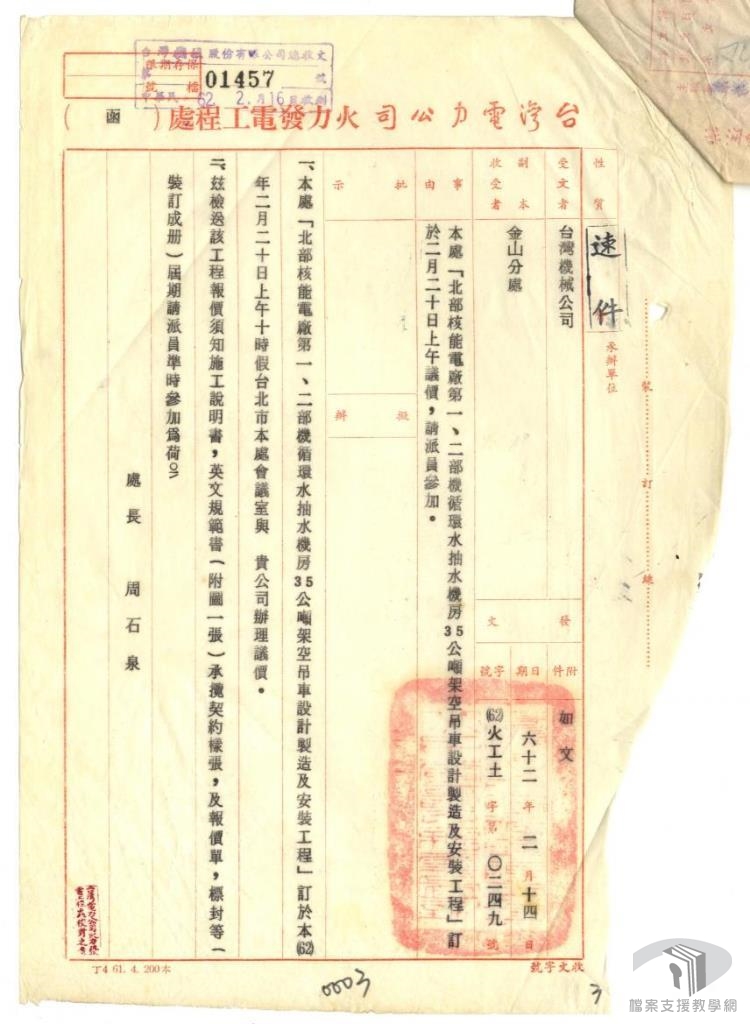 台灣機械股份有限公司總收文
保存期限
檔號
01457 號
中華民國 62. 2. 月16日收到
台灣電力公司火力發電工程處（函）
裝 訂 線
性質
速件
承辦單位
受文者
台灣機械公司
副本收受者
金山分處
發文
附件
如文
日期
六十二年二月十四日
字號
(62)火工土字第〇二四九號
事由
本處「北部核能電廠第一、二部機循環水抽水機房35公噸架空吊車設計製造及安裝工程」訂
於二月二十日上午議價，請派員參加。
批示
擬辦
一、本處「北部核能電廠第一、二部機循環水抽水機房35公噸架空吊車設計製造及安裝工程」訂於本(62)
年二月二十日上午十時假台北市本處會議室與　貴公司辦理議價。
二、茲檢送該工程報價須知施工說明書，英文規範書（附圖一張）承攬契約樣張，及報價單，標封等（
裝訂成册）屆期請派員準時參加為荷。
處長　周石泉
收文字號
丁4 61. 4. 200本
0003
3
檔案支援教學網